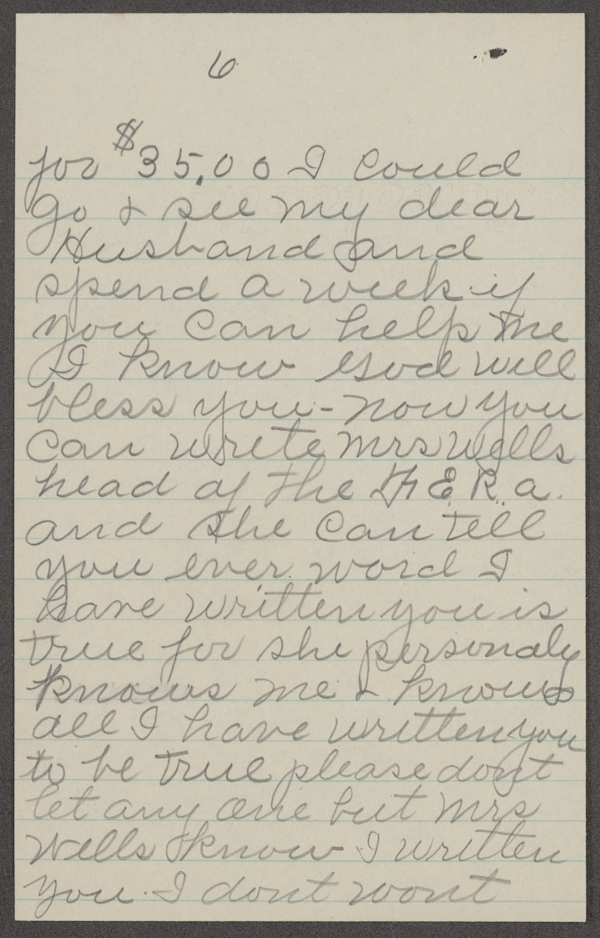 6
for $35.00 I could
go & see my dear
Husband and
spend a week if
you can help me
I know God will
bless you - now you
can write Mrs Wells
head of the F.E.R.a.
and she can tell
you ever word I
have written you is
true for she personaly
knows me & knows
all I have written you
to be true please dont
let any one but Mrs
Wells know I written
you. I dont wont